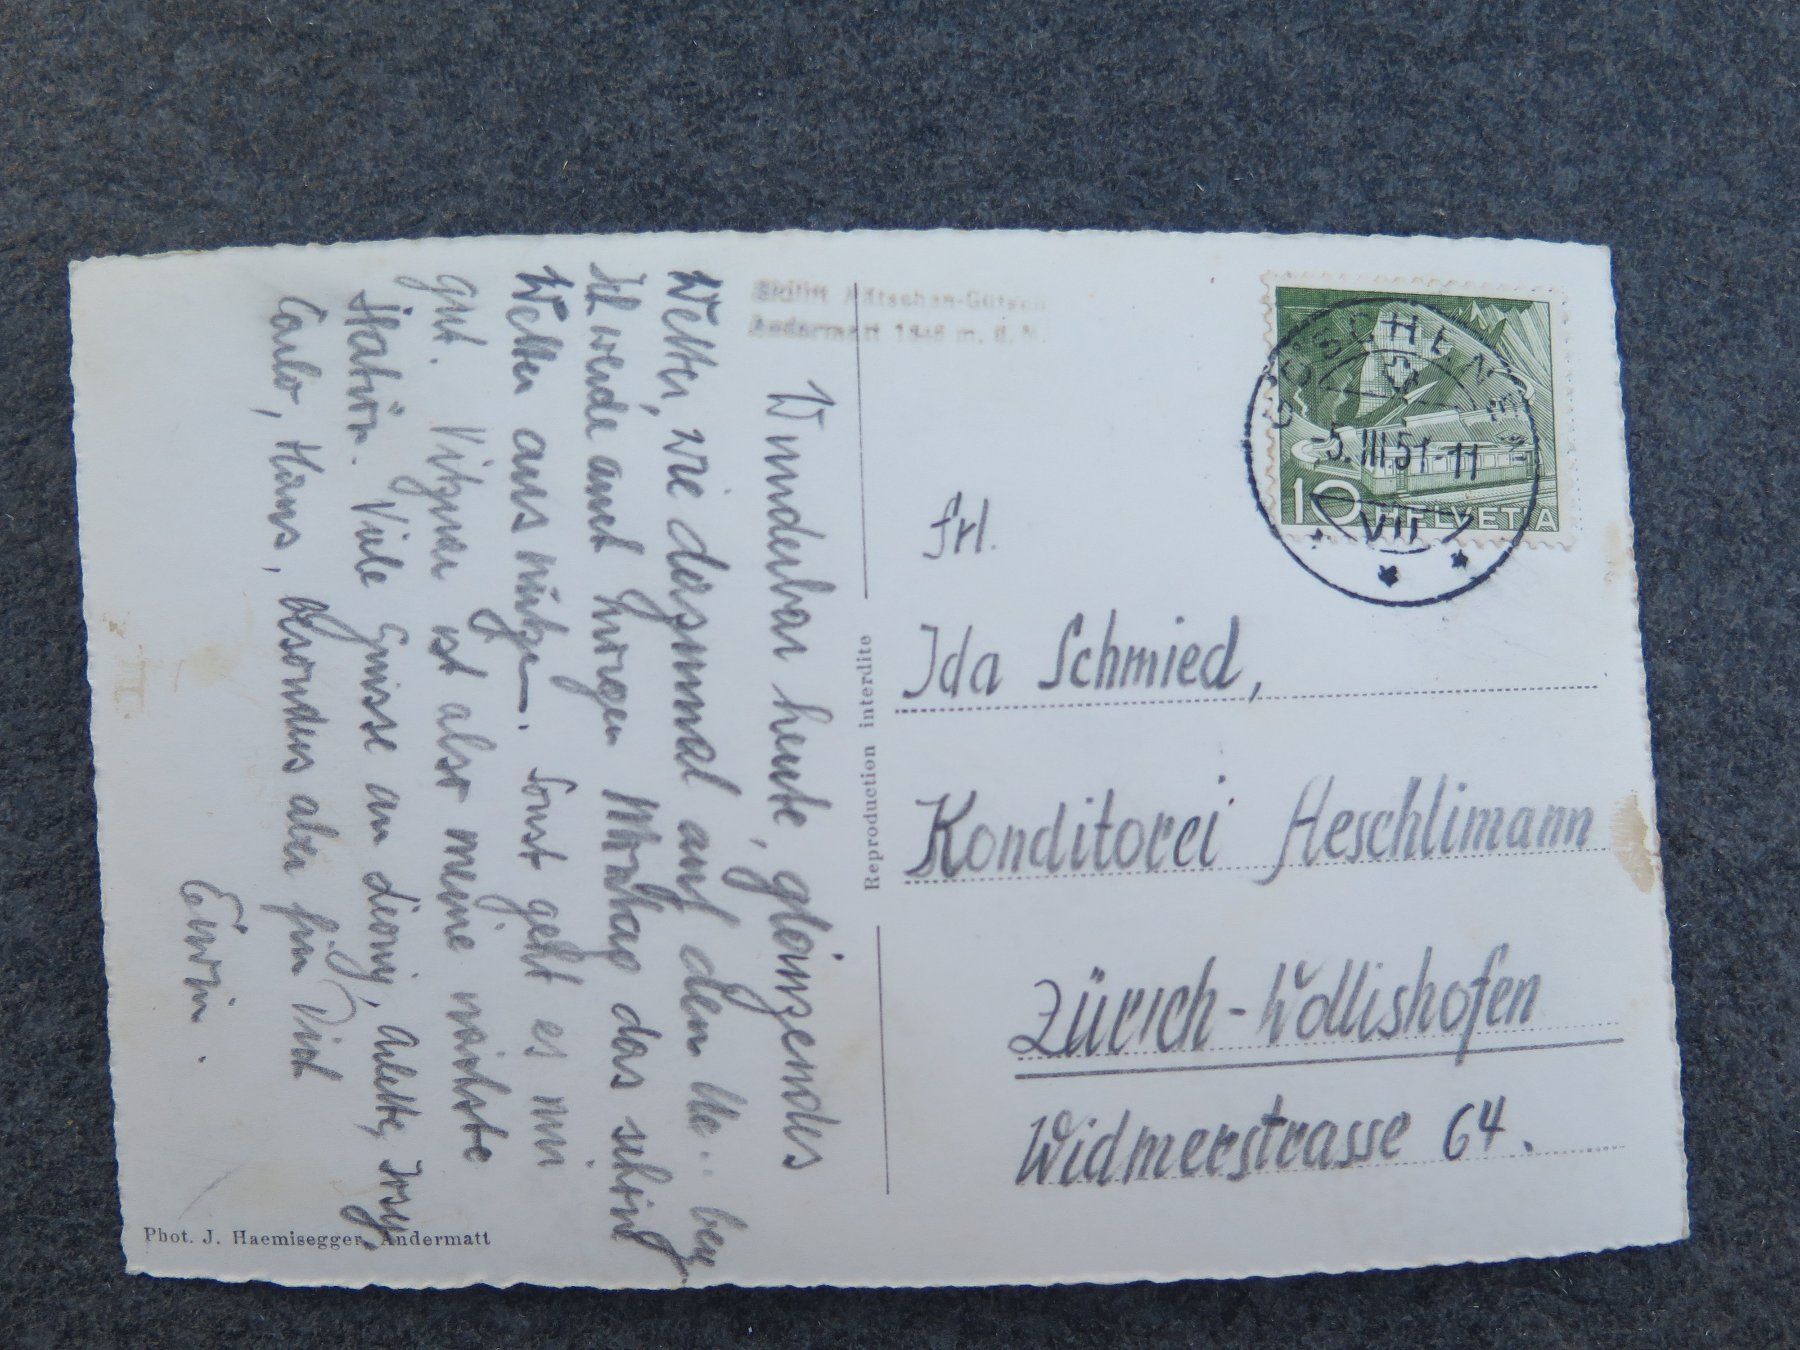 Skilift Nätschen-Gütsch
Andermatt 1848 m. ü. M.
Wunderbar heute, glänzendes
Wetter, wie diesmal auf den
Ich werde auch morgen Mittag das schöne
Wetter aus nützen. Sonst geht es mir
gut. Vitznau ist also meine nächste
Station. Viele Grüsse an Leony, Arlette, Josy,
Carlo, Hans, besonders aber für Dich
Erwin.
Phot. J. Haemisegger, Andermatt
Reproduction interdite
GÖSCHENEN
5.III.51-11
VII
10 HELVETIA
Frl.
Ida Schmied,
Konditorei Aeschlimann
Zürich-Wollishofen
Widmerstrasse 64.